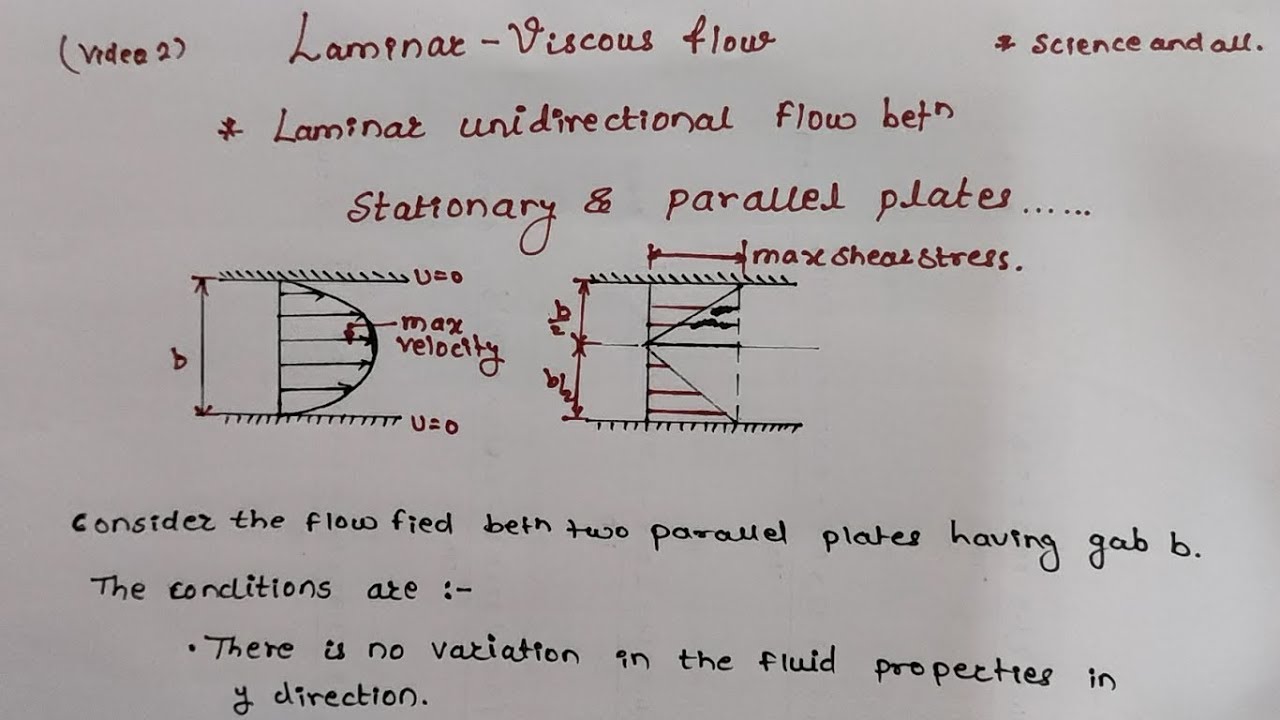 (Video 2)
Laminar - Viscous flow
* Science and all.
* Laminar unidirectional flow betn
Stationary & parallel plates......
max shear stress.
U=0
b
max
velocity
U=0
b/2
b/2
Consider the flow fied betn two parallel plates having gab b.
The conditions are :-
• There is no variation in the fluid properties in
y direction.